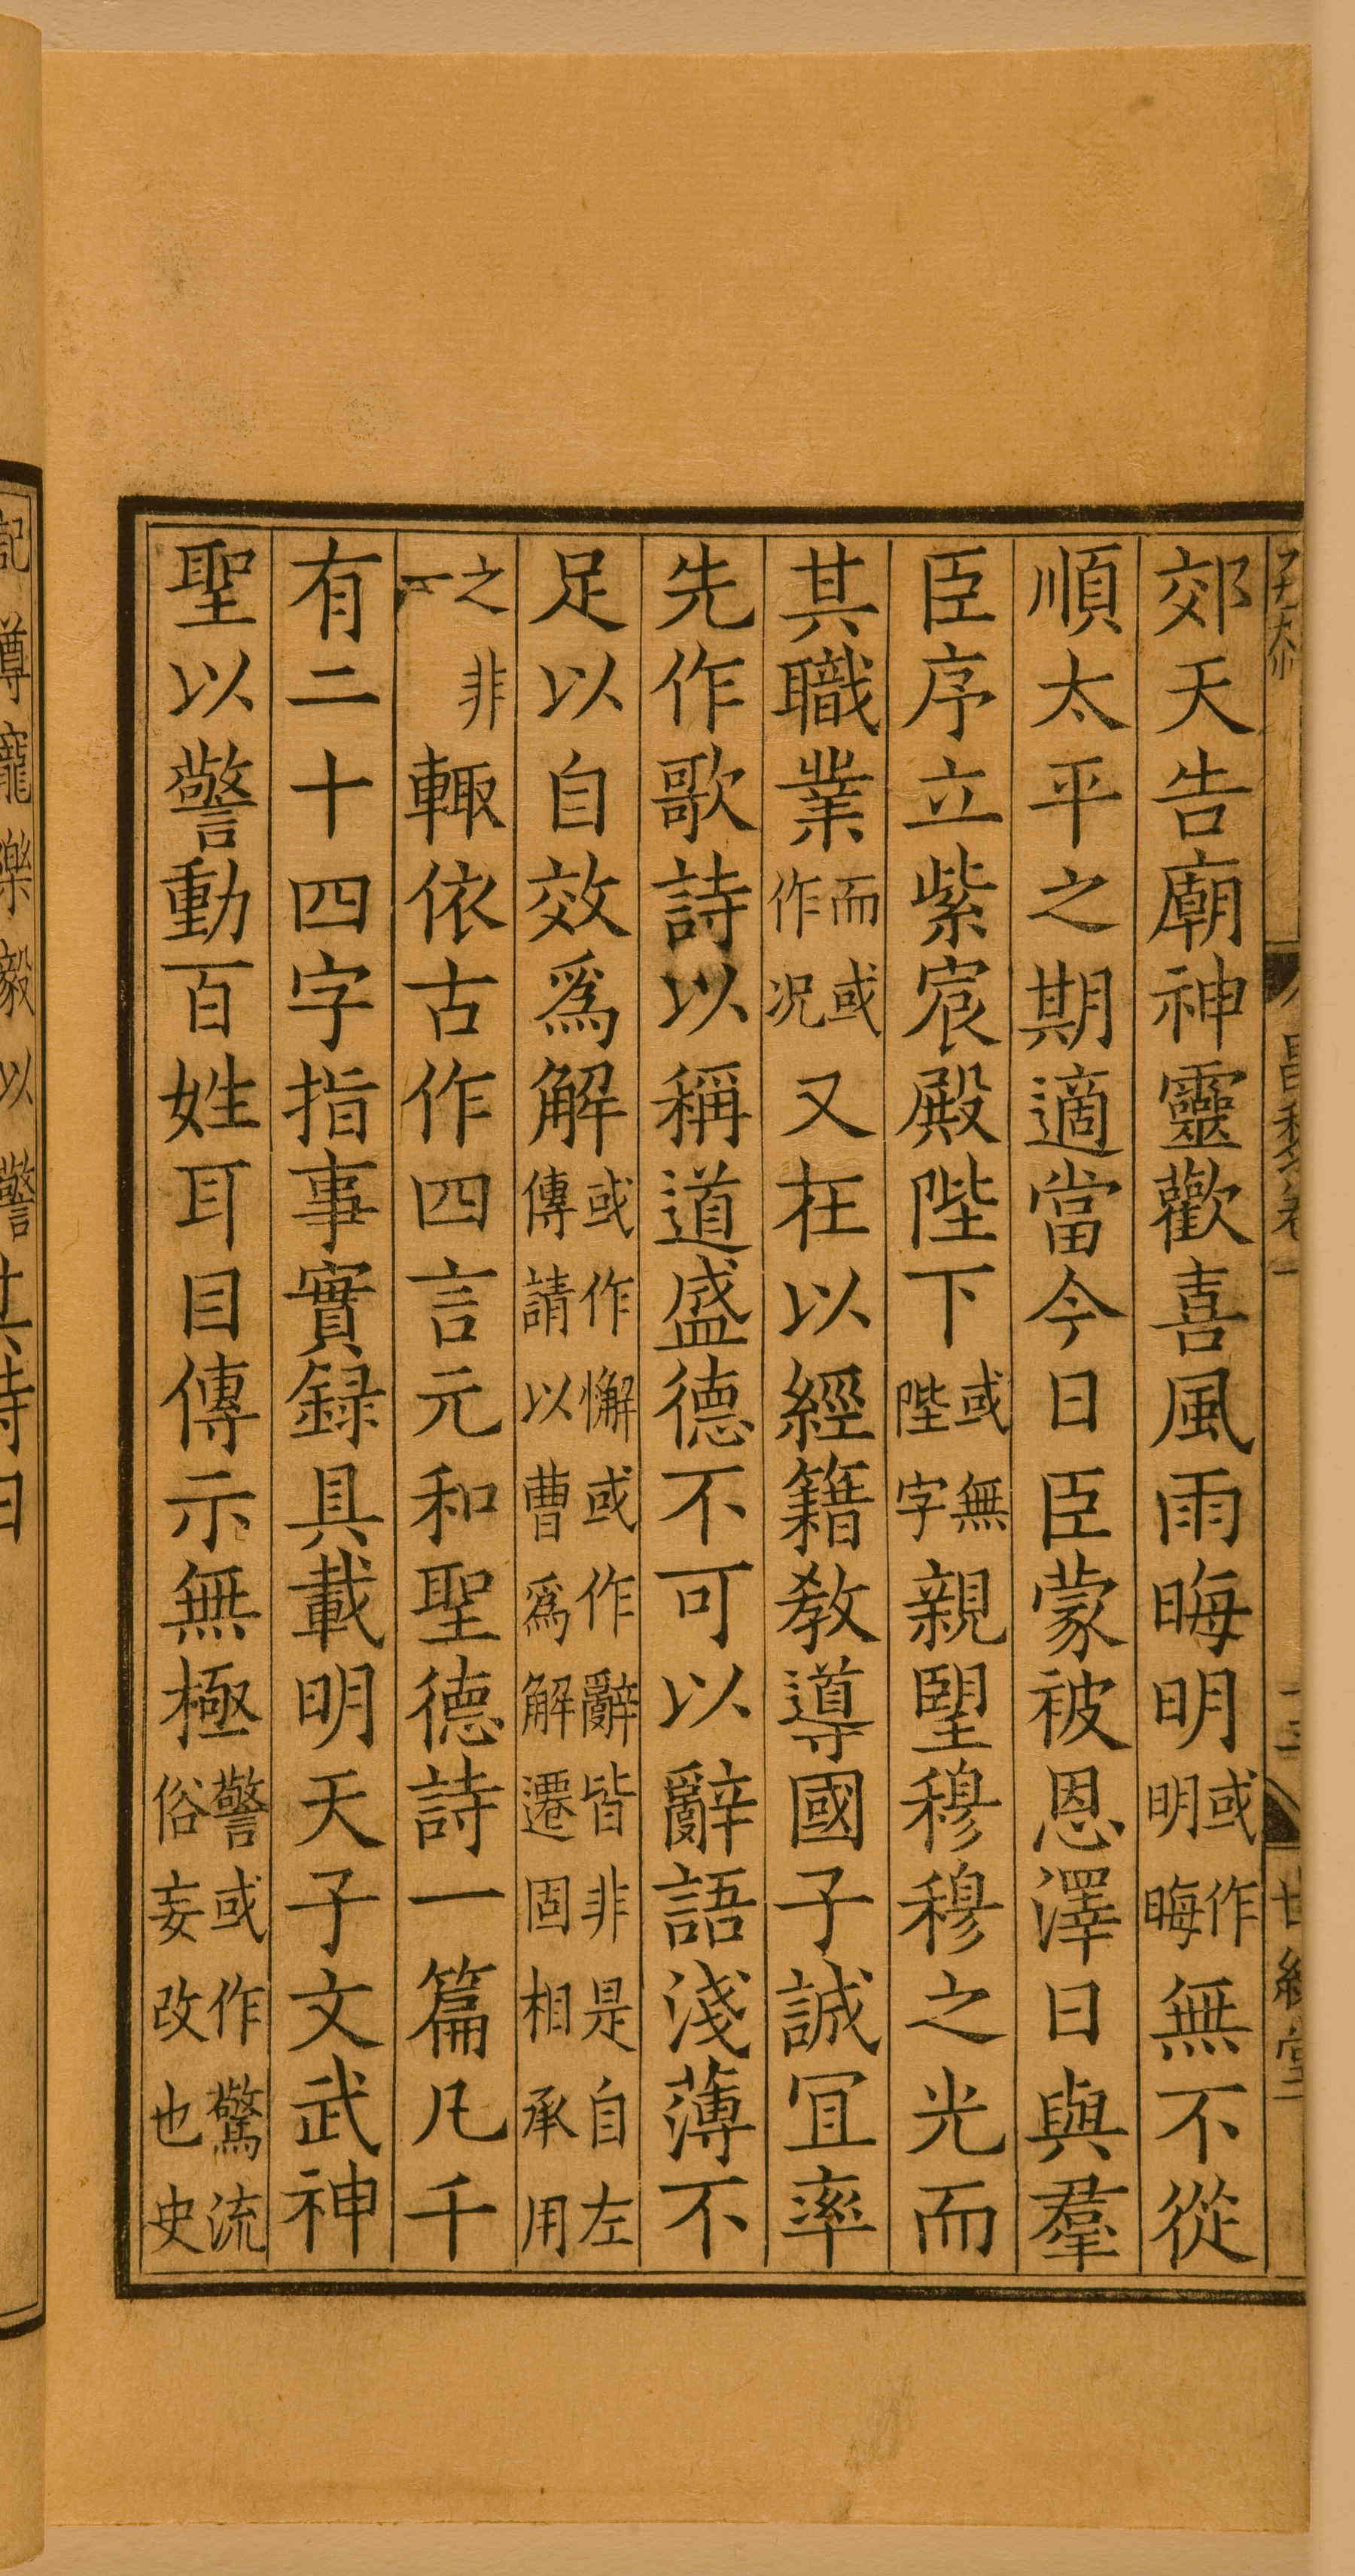 郊天告廟神靈歡喜風雨晦明或作明晦無不從
順太平之期適當今日臣蒙被恩澤日與羣
臣序立紫宸殿陛下或無陛字親朢穆穆之光而
其職業而或作况又在以經籍教導國子誠宜率
先作歌詩以稱道盛德不可以辭語淺薄不
足以自效爲解或作懈或作辭皆非是自左傳請以曹爲解遷固相承用
之非一輙依古作四言元和聖德詩一篇凡千
有二十四字指事實録具載明天子文武神
聖以警動百姓耳目傳示無極警或作驚流俗妄改也史
記尊寵樂毅以警
詩曰